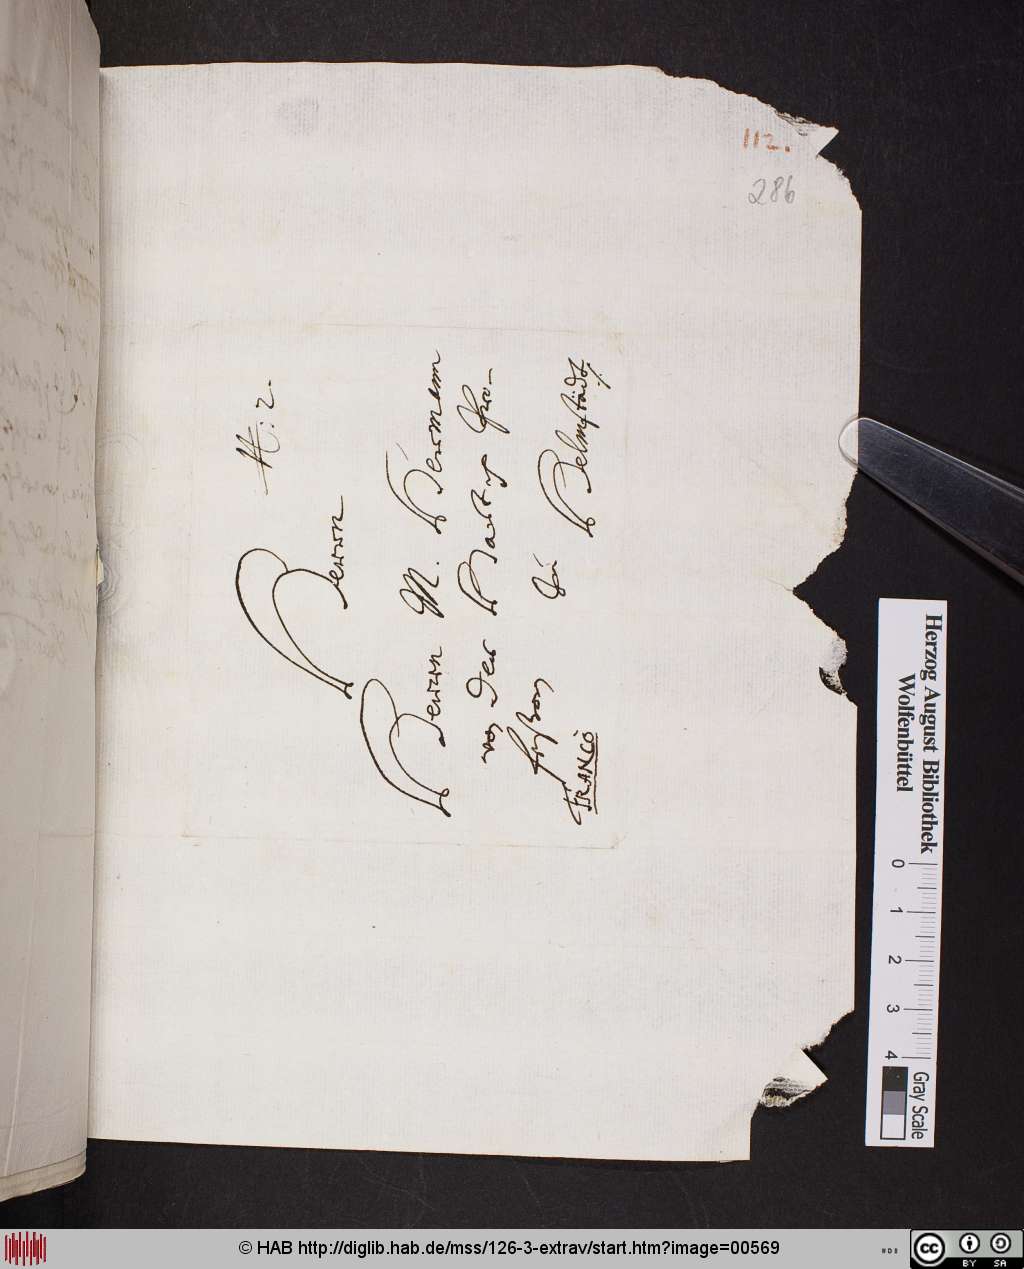 112.
286
H: 2.
Herrn
Herrn M. Herman
von der Hardt Pro-
fessori zu Helmstädt
FRANCO
Herzog August Bibliothek
Wolfenbüttel
0 1 2 3 4
Gray Scale
© HAB http://diglib.hab.de/mss/126-3-extrav/start.htm?image=00569
cc BY SA